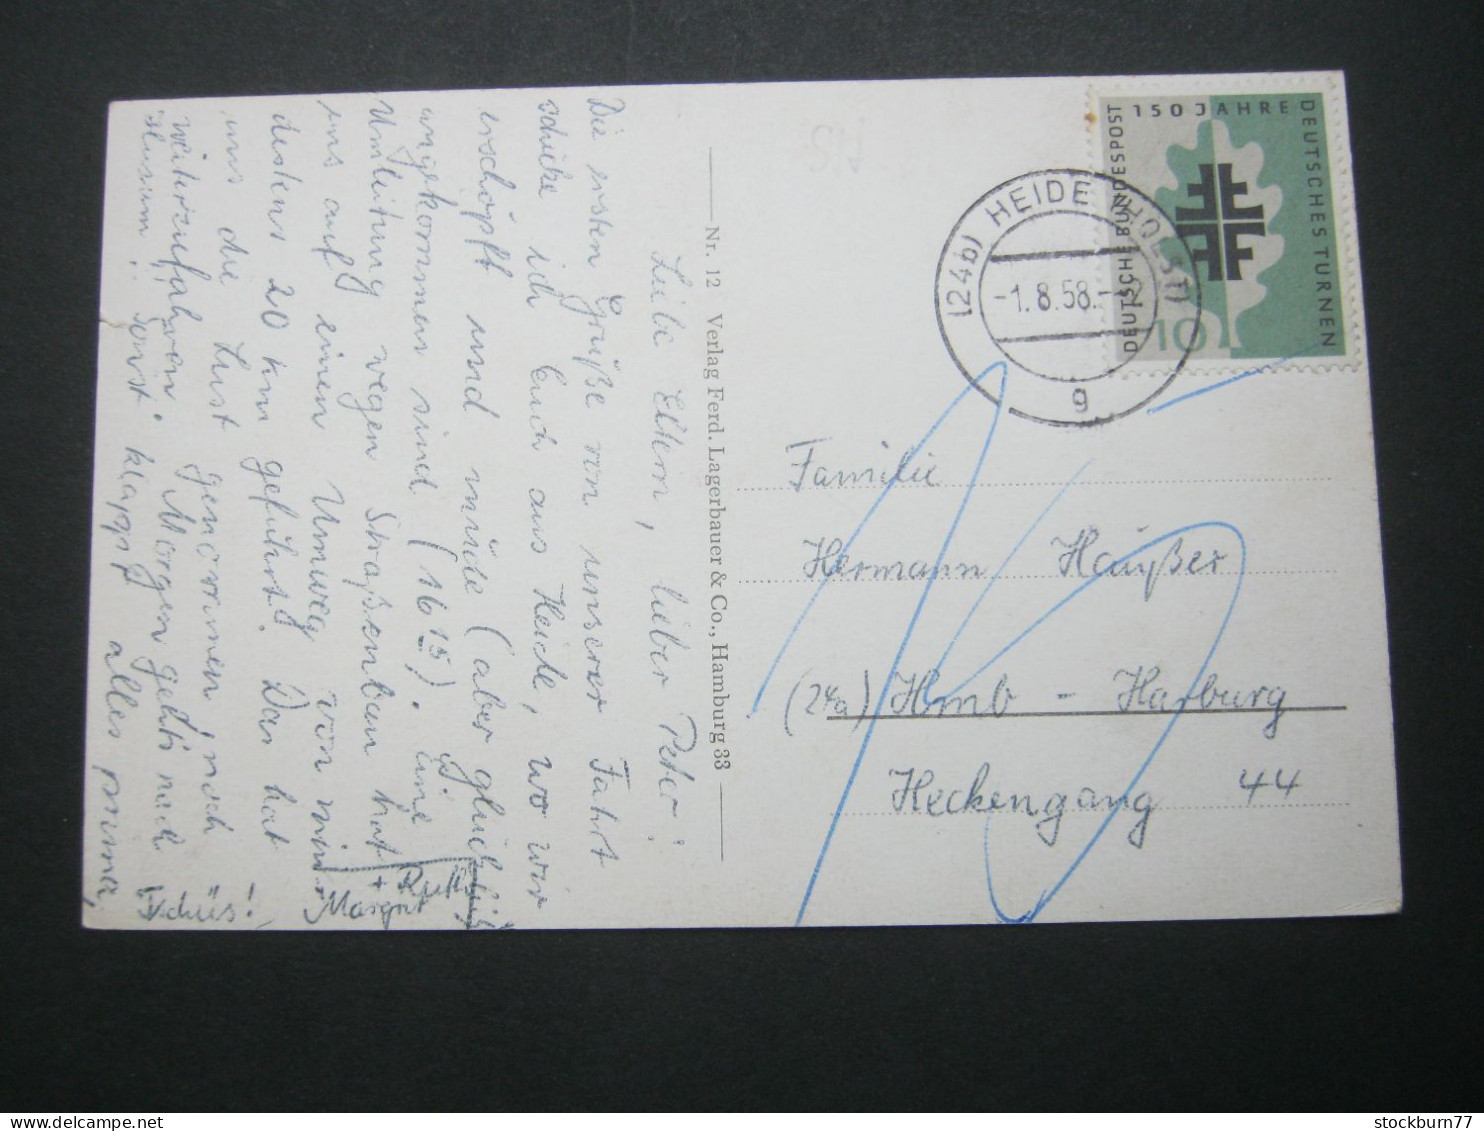 Liebe Eltern, lieber Peter!
Die ersten Grüße von unserer Fahrt
schicke ich Euch aus Heide, wo wir
erschöpft und müde (aber glücklich)
angekommen sind (16 15). Eine
Umleitung wegen Straßenbau hat
uns auf einen Umweg von min-
destens 20 km geführt. Das hat
uns die Lust genommen, noch
weiterzufahren. Morgen geht's nach
Husum! Sonst klappt alles prima,
Tschüs!
Margrit
+ Ruth
Nr. 12 Verlag Ferd. Lagerbauer & Co., Hamburg 33
DEUTSCHE BUNDESPOST
150 JAHRE
DEUTSCHES TURNEN
10
(24b) HEIDE (HOLST)
-1.8.58.-
g
Familie
Hermann Häußer
(24a) Hmb - Harburg
Heckengang 44
stockburn77